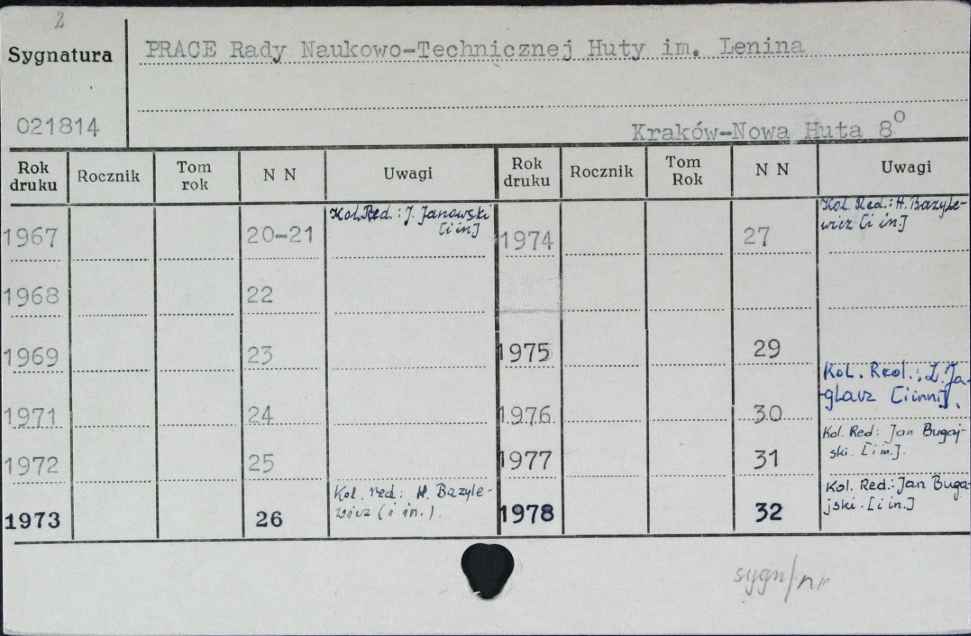 2
Sygnatura
PRACE Rady Naukowo-Technicznej Huty im. Lenina
021814
Kraków-Nowa Huta 8°
Rok druku Rocznik Tom rok N N Uwagi Rok druku Rocznik Tom Rok N N Uwagi
1967 20-21 Kol. Red.: J. Janowski [i in] 1974 27 Kol. Red.: H. Bazyle-
wicz [i in]
1968 22
1969 23 1975 29
1971 24 1976 30 Kol. Red.: Z. Ja-
-glarz [i inni].
1972 25 1977 31 Kol. Red: Jan Bugaj-
ski. [i in.].
1973 26 Kol. red.: H. Bazyle-
wicz (i in.). 1978 32 Kol. Red.: Jan Buga-
jski. [i in.]
sygn/nr